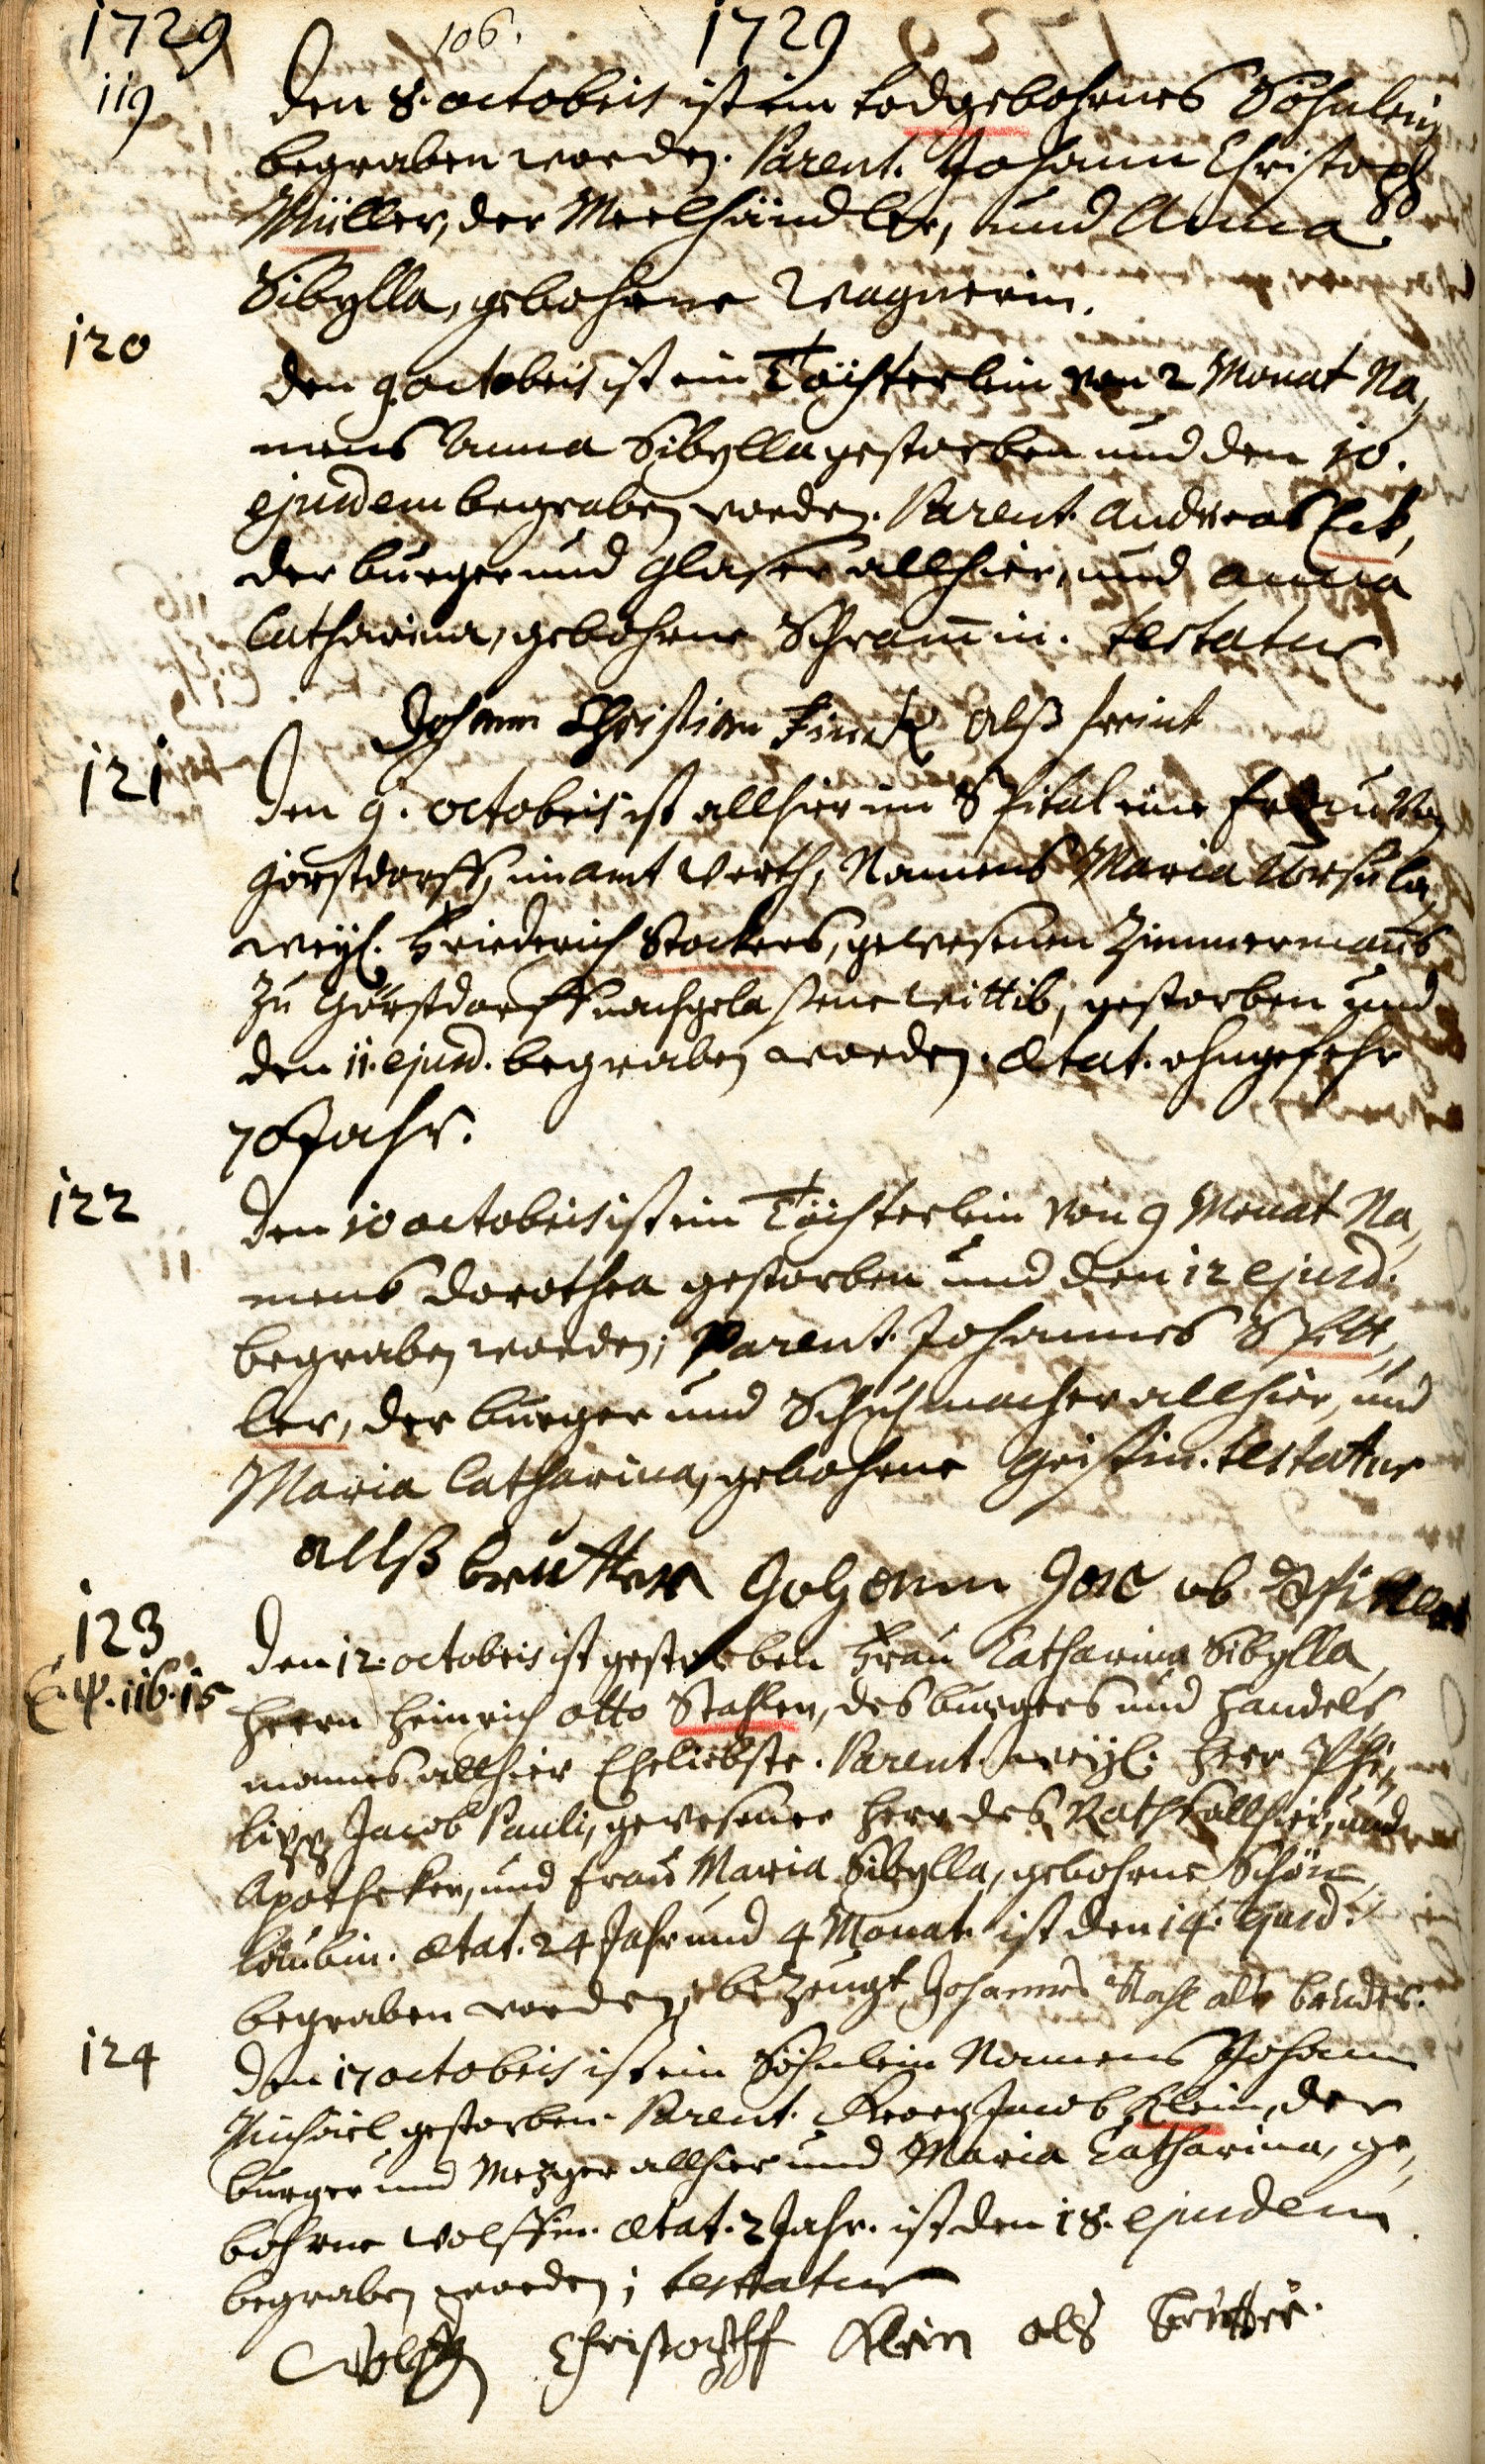 1729 106. 1729
119 den 8. octobris ist ein todgebohrnes Söhnlein
begraben worden. Parent. Johann Christoph
Müller, der Meelhändler, und Anna
Sibylla, gebohrne Wagnerin.
120
den 9 octobris ist ein Töchterlein von 2 Monat Na,
mens Anna Sibylla gestorben und den 10.
ejusdem begraben worden. Parent. Andreas Eck,
der burger und Glaser allhier, und Anna
Catharina, gebohrne Schram̅in. testatur
Johann Christian Finck alß freint
121 den 9. octobris ist allhier im Spital eine Frau von
Görstdorff, im amt Werth, Namens Maria Ursula,
weyl. Friederich Stockers, gewesenen Zimmermans
zu Görstdorff nachgelassene Wittib, gestorben und
den 11. ejusd. begraben worden. Ætat. ohngefehr
70 Jahr.
122 den 10 octobris ist ein Töchterlein von 9 Monat Na,
mens Dorothea gestorben und den 12 ejusd.
begraben worden; Parent. Johannes Spitt,
ler, der burger und Schuhmacher allhier, und
Maria Catharina, gebohrne Geistin. testatur
allß brutter Johann Jacob
123 den 12. octobris ist gestorben Frau Catharina Sibylla,
116.15 Herrn Heinrich Otto Stahlen, des burgers und Handels
manns allhier Eheliebste. Parent. weyl. Herr Phi,
lipp Jacob Pauli, gewesener Herr des Raths allhier, und
Apotheker, und Frau Maria Sibylla, gebohrne Schön,
laubin. Ætat. 24 Jahr und 4 Monat. ist den 14. ejusd.
begraben worden, bezeugt Johannes Stahl als bruder.
124 den 17 octobris ist ein Söhnlein Namens Johann
Michael gestorben. Parent. Georg Jacob Klein, der
burger und Metzger allhier und Maria Catharina, ge,
bohrne Wolffin. Ætat. 2 Jahr. ist den 18. ejusdem
begraben worden; testatur
Christopff Klein als brutter.